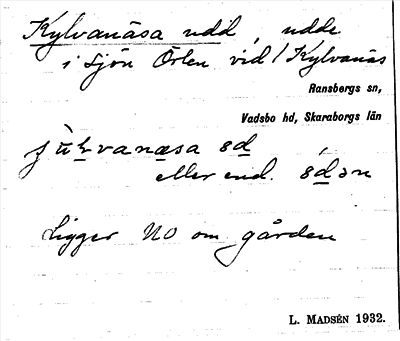 Kylvanäsa udd, udde
i sjön Örlen vid / Kylvanäs
Ransbergs sn,
Vadsbo hd, Skaraborgs län
eller end. ədən
Ligger NO om gården
L. MADSÉN 1932.